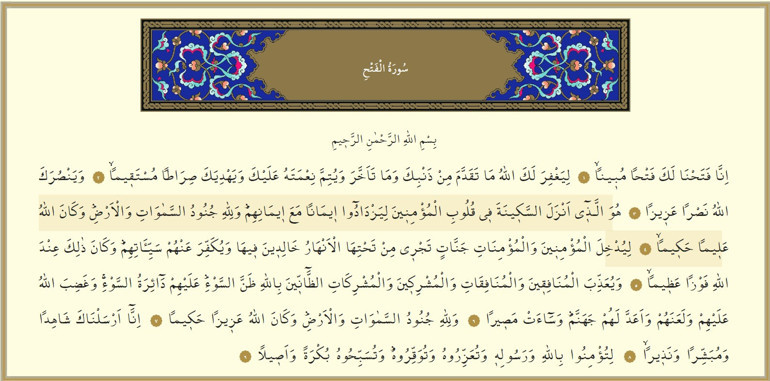 سُورَةُ الْفَتْحِ
بِسْمِ اللهِ الرَّحْمٰنِ الرَّح۪يمِ
اِنَّا فَتَحْنَا لَكَ فَتْحًا مُب۪ينًاۙ ١ لِيَغْفِرَ لَكَ اللهُ مَا تَقَدَّمَ مِنْ ذَنْبِكَ وَمَا تَاَخَّرَ وَيُتِمَّ نِعْمَتَهُ عَلَيْكَ وَيَهْدِيَكَ صِرَاطًا مُسْتَق۪يمًاۙ ٢ وَيَنْصُرَكَ
اللهُ نَصْرًا عَز۪يزًا ٣ هُوَ الَّذ۪ٓى اَنْزَلَ السَّك۪ينَةَ ف۪ى قُلُوبِ الْمُؤْمِن۪ينَ لِيَزْدَادُٓوا ا۪يمَانًا مَعَ ا۪يمَانِهِمْۜ وَلِلّٰهِ جُنُودُ السَّمٰوَاتِ وَالْاَرْضِۜ وَكَانَ اللهُ
عَل۪يمًا حَك۪يمًاۙ ٤ لِيُدْخِلَ الْمُؤْمِن۪ينَ وَالْمُؤْمِنَاتِ جَنَّاتٍ تَجْر۪ى مِنْ تَحْتِهَا الْاَنْهَارُ خَالِد۪ينَ ف۪يهَا وَيُكَفِّرَ عَنْهُمْ سَيِّـَٔاتِهِمْۜ وَكَانَ ذٰلِكَ عِنْدَ
اللهِ فَوْزًا عَظ۪يمًاۙ ٥ وَيُعَذِّبَ الْمُنَافِق۪ينَ وَالْمُنَافِقَاتِ وَالْمُشْرِك۪ينَ وَالْمُشْرِكَاتِ الظَّٓانّ۪ينَ بِاللهِ ظَنَّ السَّوْءِۜ عَلَيْهِمْ دَٓائِرَةُ السَّوْءِۚ وَغَضِبَ اللهُ
عَلَيْهِمْ وَلَعَنَهُمْ وَاَعَدَّ لَهُمْ جَهَنَّمَۜ وَسَٓاءَتْ مَص۪يرًا ٦ وَلِلّٰهِ جُنُودُ السَّمٰوَاتِ وَالْاَرْضِۜ وَكَانَ اللهُ عَز۪يزًا حَك۪يمًا ٧ اِنَّٓا اَرْسَلْنَاكَ شَاهِدًا
وَمُبَشِّرًا وَنَذ۪يرًاۙ ٨ لِتُؤْمِنُوا بِاللهِ وَرَسُولِه۪ وَتُعَزِّرُوهُ وَتُوَقِّرُوهُۜ وَتُسَبِّحُوهُ بُكْرَةً وَاَص۪يلًا ٩